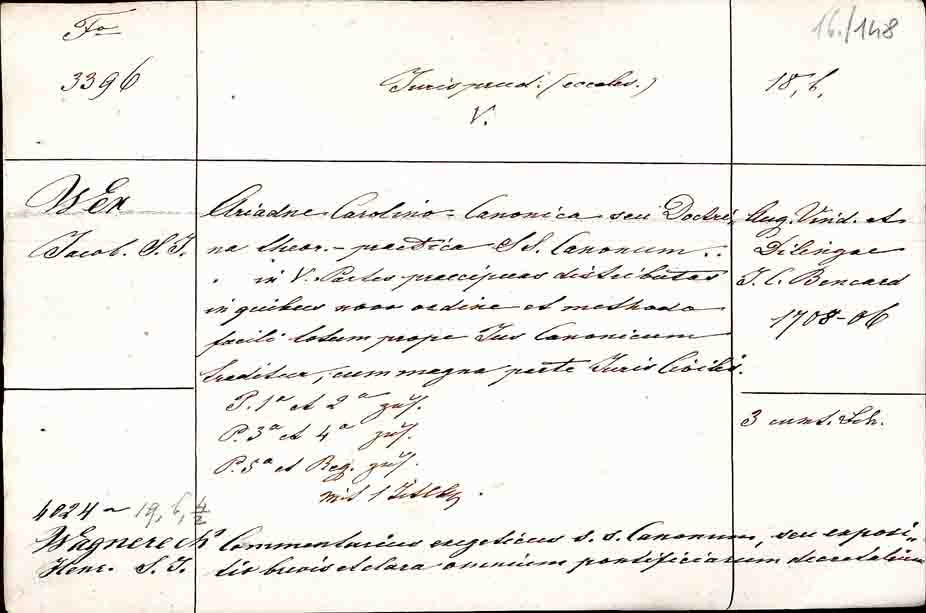 Fo
16./148
3396
Jurisprud: (eccles.)
18, 6,
V.
Wex
Jacob. S. J.
Ariadne Carolino-Canonica seu Doctri„
na theor.-practica S S. Canonum . .
. in V. Partes praecipuas distributas
in quibus novo ordine et methodo
facili totum prope Jus Canonicum
traditur, cum magna parte Juris Civilis.
Aug. Vind. et
Dilingae
J. C. Bencard
1708-06
P. 1a et 2a zus.
P. 3a et 4a zus.
P. 5a et Reg. zus.
mit 1 Titelkp.
3
4024 ~ 19, 6, 4/2
Wagnereck
Henr. S. J.
Commentarius exegeticus s. s. Canonum, seu exposi„
tio brevis et clara omnium pontificiarum decretalium